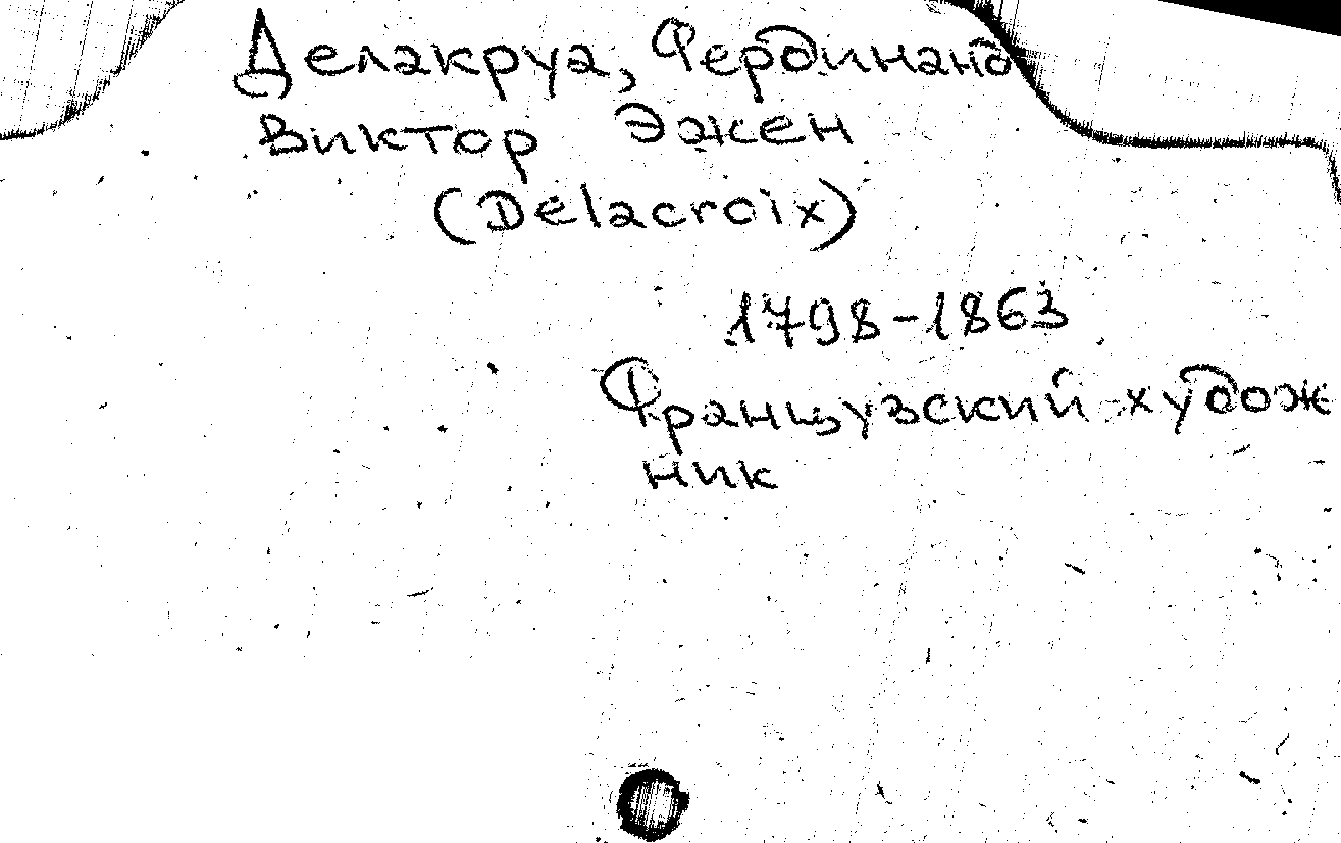 Делакруа, Фердинанд
Виктор Эжен
(Delacroix)
1798-1863
Французский худож
ник